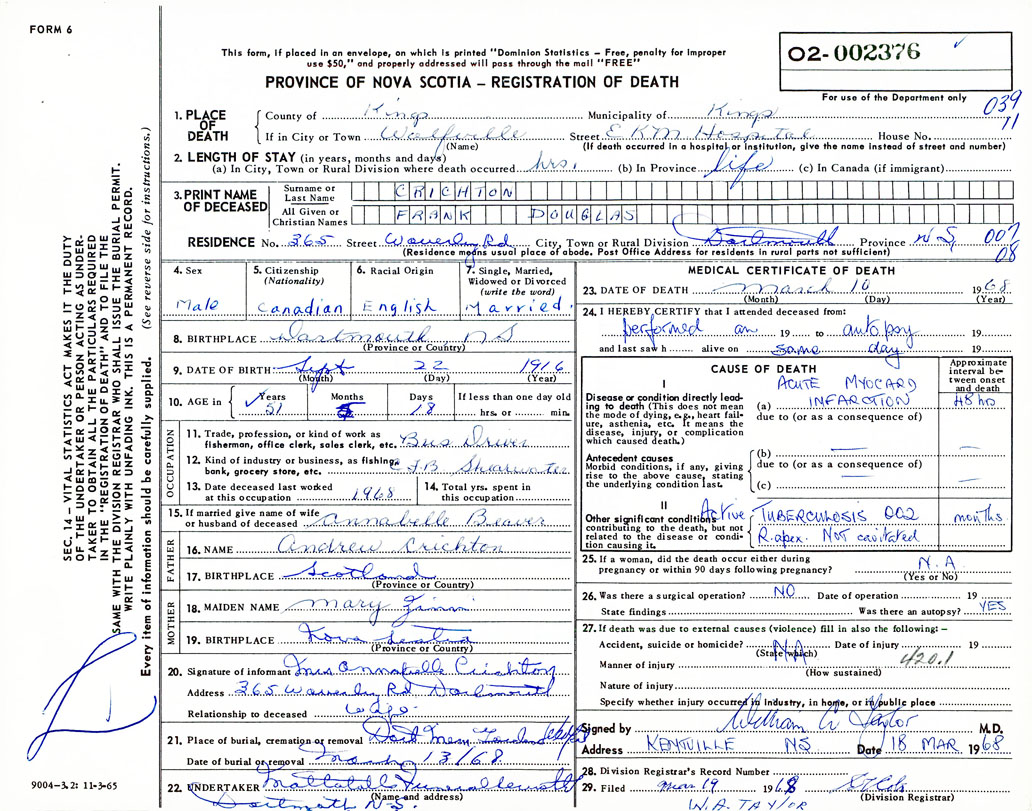 FORM 6
This form, if placed in an envelope, on which is printed "Dominion Statistics – Free, penalty for improper
use $50," and properly addressed will pass through the mail "FREE"
PROVINCE OF NOVA SCOTIA – REGISTRATION OF DEATH
02-002376
For use of the Department only
039
11
1. PLACE OF DEATH
County of Kings Municipality of Kings
If in City or Town Wolfville Street EKM Hospital House No.
(Name) (If death occurred in a hospital or institution, give the name instead of street and number)
2. LENGTH OF STAY (in years, months and days)
(a) In City, Town or Rural Division where death occurred hrs. (b) In Province life (c) In Canada (if immigrant)
3. PRINT NAME OF DECEASED
Surname or Last Name CRICHTON
All Given or Christian Names FRANK DOUGLAS
RESIDENCE No. 365 Street Waverley Rd City, Town or Rural Division Dartmouth Province N S
007
08
(Residence means usual place of abode. Post Office Address for residents in rural parts not sufficient)
4. Sex
Male
5. Citizenship (Nationality)
Canadian
6. Racial Origin
English
7. Single, Married, Widowed or Divorced (write the word)
Married
8. BIRTHPLACE Dartmouth NS
(Province or Country)
9. DATE OF BIRTH Sept 22 1916
(Month) (Day) (Year)
10. AGE in Years Months Days If less than one day old
51 18 hrs. or min.
OCCUPATION
11. Trade, profession, or kind of work as fisherman, office clerk, sales clerk, etc. Bus Driver
12. Kind of industry or business, as fishing, bank, grocery store, etc.
13. Date deceased last worked at this occupation 1968
14. Total yrs. spent in this occupation
15. If married give name of wife or husband of deceased Annabelle Beaver
FATHER
16. NAME Andrew Crichton
17. BIRTHPLACE Scotland
(Province or Country)
MOTHER
18. MAIDEN NAME Mary
19. BIRTHPLACE Nova Scotia
(Province or Country)
20. Signature of informant Mrs Annabelle Crichton
Address 365 Waverley Rd Dartmouth
Relationship to deceased
21. Place of burial, cremation or removal Dart Mem Gardens
Date of burial or removal March 13/68
22. UNDERTAKER Mattatall Funeral
(Name and address)
Dartmouth N-S.
MEDICAL CERTIFICATE OF DEATH
23. DATE OF DEATH March 10 1968
(Month) (Day) (Year)
24. I HEREBY CERTIFY that I attended deceased from:
performed an 19 to autopsy 19
and last saw h alive on same day 19
CAUSE OF DEATH
Approximate interval between onset and death
I
Disease or condition directly leading to death (This does not mean the mode of dying, e.g., heart failure, asthenia, etc. It means the disease, injury, or complication which caused death.)
ACUTE MYOCARD
(a) INFARCTION 48 hrs
due to (or as a consequence of)
Antecedent causes
Morbid conditions, if any, giving rise to the above cause, stating the underlying condition last.
(b) —
due to (or as a consequence of)
(c) —
II
Other significant conditions contributing to the death, but not related to the disease or condition causing it.
Active TUBERCULOSIS 002 months
R. apex. NOT cavitated
25. If a woman, did the death occur either during pregnancy or within 90 days following pregnancy? N.A
(Yes or No)
26. Was there a surgical operation? NO Date of operation 19
State findings Was there an autopsy? YES
27. If death was due to external causes (violence) fill in also the following: –
Accident, suicide or homicide? NA Date of injury 19
(State which)
420.1
Manner of injury
(How sustained)
Nature of injury
Specify whether injury occurred in industry, in home, or in public place
Signed by William A Taylor M.D.
Address KENTVILLE NS Date 18 MAR 1968
28. Division Registrar's Record Number
29. Filed Mar 19 1968
(Division Registrar)
W.A. TAYLOR
SEC. 14 – VITAL STATISTICS ACT MAKES IT THE DUTY
OF THE UNDERTAKER OR PERSON ACTING AS UNDER-
TAKER TO OBTAIN ALL THE PARTICULARS REQUIRED
IN THE "REGISTRATION OF DEATH" AND TO FILE THE
SAME WITH THE DIVISION REGISTRAR WHO SHALL ISSUE THE BURIAL PERMIT.
WRITE PLAINLY WITH UNFADING INK. THIS IS A PERMANENT RECORD.
Every item of information should be carefully supplied. (See reverse side for instructions.)
9004–3.2: 11-3-65